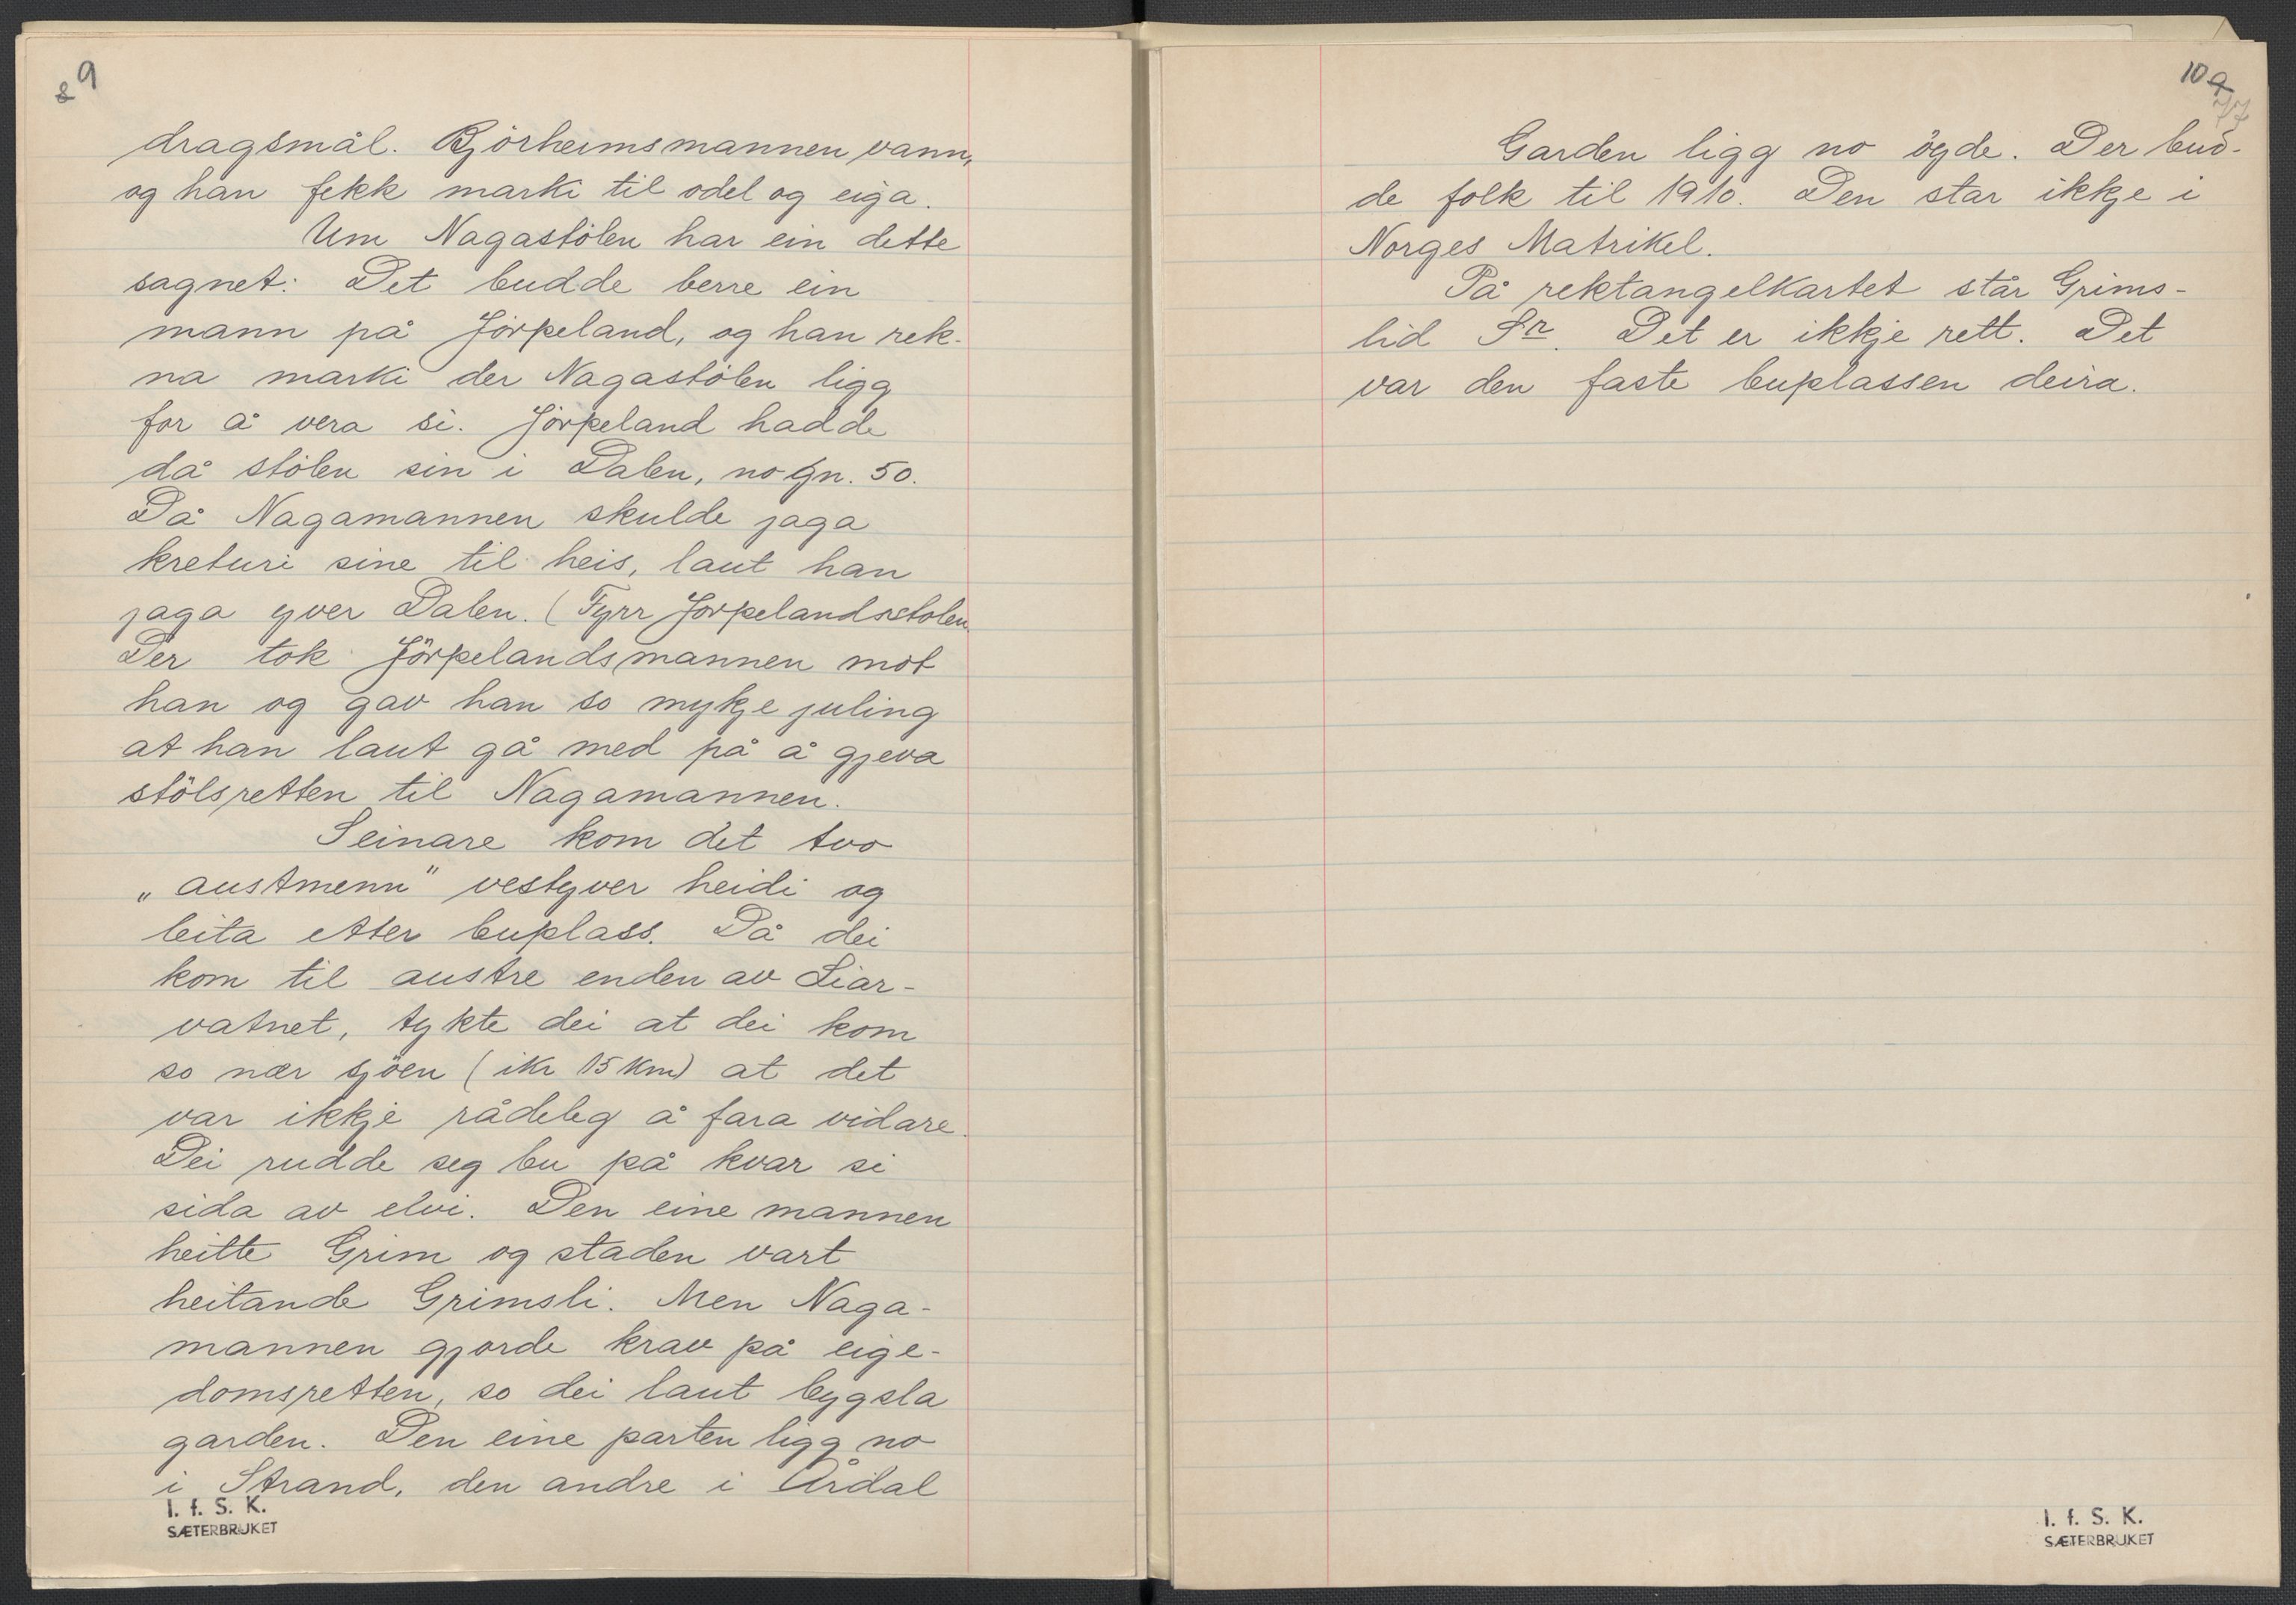 8 9
dragsmål. Bjørheimsmannen vann,
og han fekk marki til odel og eiga.
Um Nagastölen har ein dette
sagnet: Det budde berre ein
mann på Jörpeland, og han rek-
na marki der Nagastölen ligg
for å vera si. Jörpeland hadde
då stölen sin i Dalen, no gn. 50.
Då Nagamannen skulde jaga
kreturi sine til heis, laut han
jaga yver Dalen. (Fyrr Jorpelandsstolen
Der tok Jörpelandsmannen mot
han og gav han so mykje juling
at han laut gå med på å gjeva
stölsretten til Nagamannen.
Seinare kom det tvo
„austmenn" vestyver heidi og
leita etter buplass. Då dei
kom til austre enden av Liar-
vatnet, tykte dei at dei kom
so nær sjöen (ikr 15 km) at det
var ikkje rådeleg å fara vidare.
Dei rudde seg bu på kvar si
sida av elvi. Den eine mannen
heitte Grim og staden vart
heitande Grimsli. Men Naga-
mannen gjorde krav på eige-
domsretten, so dei laut bygsla
garden. Den eine parten ligg no
i Strand, den andre i Årdal
I. f. S. K.
SÆTERBRUKET
10 9
77
Garden ligg no öyde. Der bud-
de folk til 1910. Den star ikkje i
Norges Matrikel.
På rektangelkartet står Grims-
lid Sr. Det er ikkje rett. Det
var den faste buplassen deira.
I. f. S. K.
SÆTERBRUKET